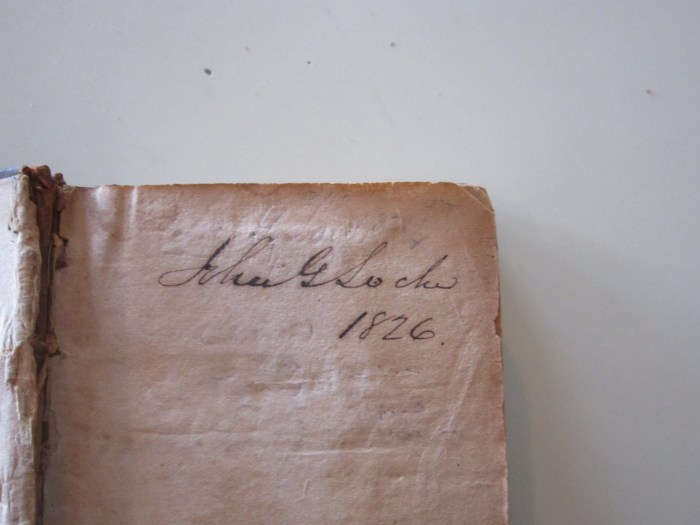 John G Locke
1826.